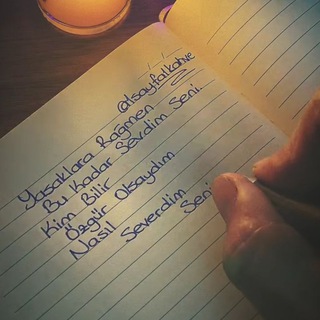 @1sayfalkahve
Yasaklara Rağmen
Bu Kadar Sevdim Seni.
Kim Bilir
Özgür Olsaydım
Nasıl Severdim
Seni